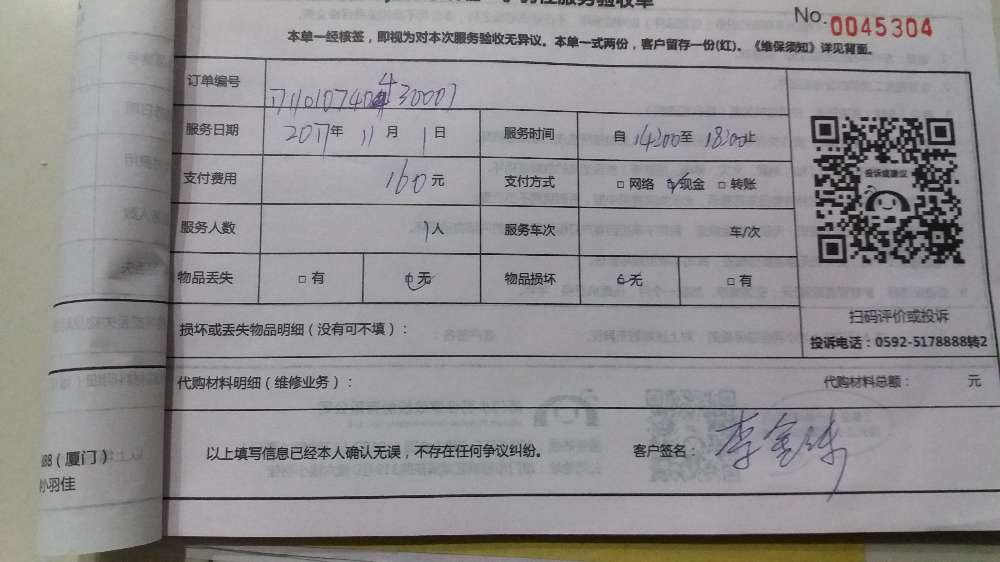 服务验收单
No. 0045304
本单一经核签，即视为对本次服务验收无异议。本单一式两份，客户留存一份(红)。《维保须知》详见背面。
订单编号
服务日期 2017年 11月 1日 服务时间 自 14:00至 18:00止
支付费用 160元 支付方式 □ 网络 ☑现金 □ 转账
服务人数 1人 服务车次 车/次
物品丢失 □ 有 ☑无 物品损坏 ☑无 □ 有
投诉或建议
扫码评价或投诉
投诉电话：0592-5178888转2
损坏或丢失物品明细（没有可不填）：
代购材料明细（维修业务）： 代购材料总额： 元
以上填写信息已经本人确认无误，不存在任何争议纠纷。 客户签名：
88（厦门）
小羽佳